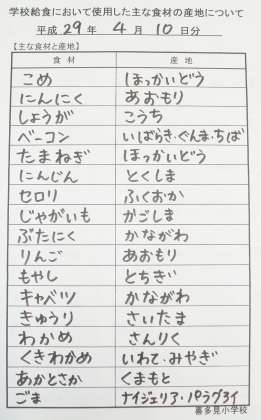 学校給食において使用した主な食材の産地について
平成 29 年 4 月 10 日分
【主な食材と産地】
食材 産地
こめ ほっかいどう
にんにく あおもり
しょうが こうち
ベーコン いばらき・ぐんま・ちば
たまねぎ ほっかいどう
にんじん とくしま
セロリ ふくおか
じゃがいも かごしま
ぶたにく かながわ
りんご あおもり
もやし とちぎ
キャベツ かながわ
きゅうり さいたま
わかめ さんりく
くきわかめ いわて・みやぎ
あかとさか くまもと
ごま ナイジェリア・パラグアイ
喜多見小学校